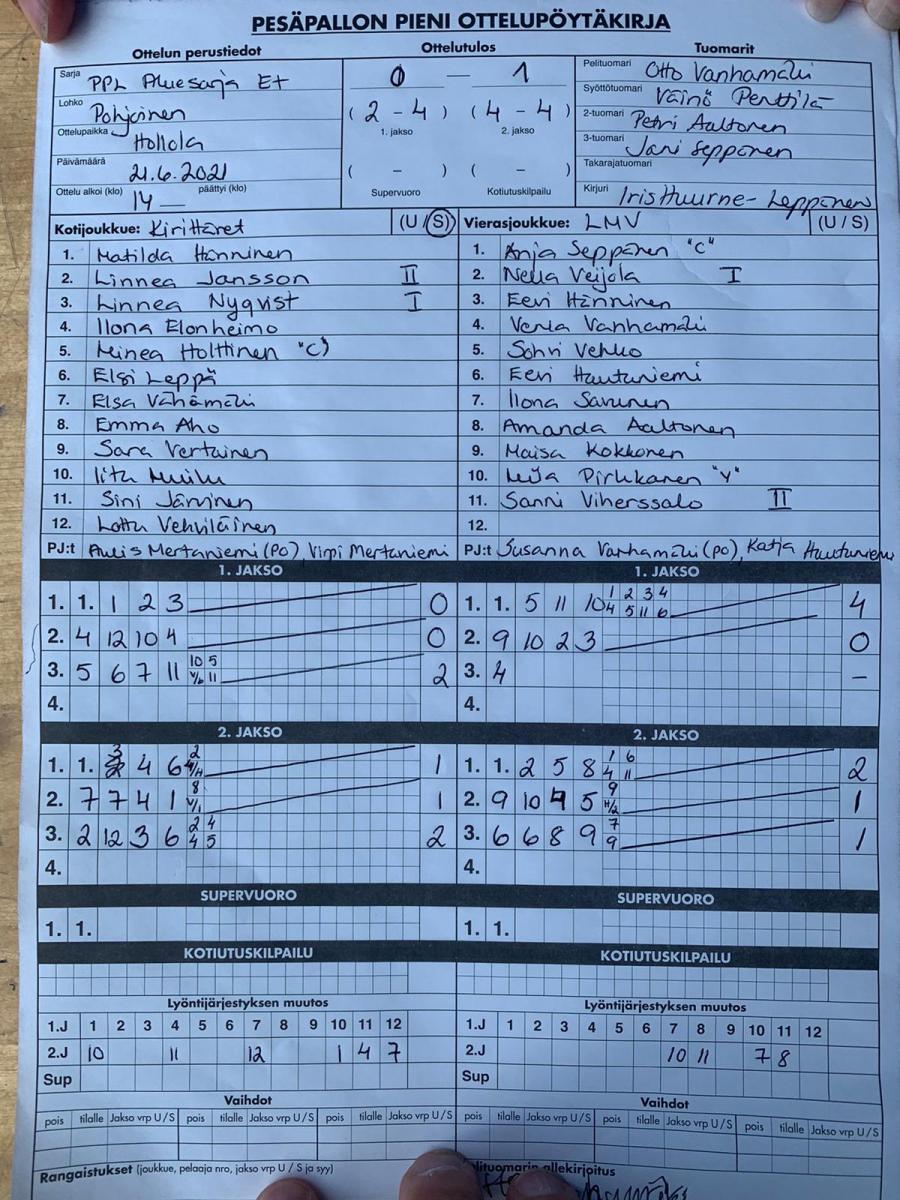 PESÄPALLON PIENI OTTELUPÖYTÄKIRJA
Ottelun perustiedot Ottelutulos Tuomarit
Sarja PPL Aluesarja Et
Lohko Pohjoinen
Ottelupaikka Hollola
Päivämäärä 21.6.2021
Ottelu alkoi (klo) 14 — päättyi (klo)
0 — 1
( 2 - 4 ) ( 4 - 4 )
1. jakso 2. jakso
( - ) ( - )
Supervuoro Kotiutuskilpailu
Pelituomari Otto Vanhamäki
Syöttötuomari Väinö Penttilä
2-tuomari Petri Aaltonen
3-tuomari Jani Seppänen
Takarajatuomari
Kirjuri Iris Huurne-Leppänen
Kotijoukkue: Kirittäret (U / S)
1. Matilda Hänninen
2. Linnea Jansson II
3. Linnea Nyqvist I
4. Ilona Elonheimo
5. Minea Holttinen "C)
6. Elsi Leppä
7. Elsa Vähämäki
8. Emma Aho
9. Sara Vertainen
10. Iita
11. Sini Järvinen
12. Lotta Vehviläinen
PJ:t Aulis Mertaniemi (PO), Virpi Mertaniemi
Vierasjoukkue: LMV (U / S)
1. Anja Seppänen "C"
2. Nella Veijola I
3. Eevi Hänninen
4. Verla Vanhamäki
5. Sohvi Vehko
6. Eevi Hautaniemi
7. Ilona Savunen
8. Amanda Aaltonen
9. Maisa Kokkonen
10. Pirhkanen "V"
11. Sanni Viherssalo II
12.
PJ:t Susanna Vanhamäki (po), Katja Hautaniemi
1. JAKSO
1. 1. 1 2 3 0
2. 4 12 10 4 0
3. 5 6 7 11 10 5 V/6 11 2
4.
1. JAKSO
1. 1. 5 11 10 1 2 3 4 4 5 11 6 4
2. 9 10 2 3 0
3. 4 -
4.
2. JAKSO
1. 1. 3 4 6 2 4/H 1
2. 7 7 4 1 8 V/1 1
3. 2 12 3 6 2 4 4 5 2
4.
2. JAKSO
1. 1. 2 5 8 1 6 4 11 2
2. 9 10 4 5 9 H/2 1
3. 6 6 8 9 7 9 1
4.
SUPERVUORO SUPERVUORO
1. 1. 1. 1.
KOTIUTUSKILPAILU KOTIUTUSKILPAILU
Lyöntijärjestyksen muutos Lyöntijärjestyksen muutos
1.J 1 2 3 4 5 6 7 8 9 10 11 12 1.J 1 2 3 4 5 6 7 8 9 10 11 12
2.J 10 11 12 1 4 7 2.J 10 11 7 8
Sup Sup
Vaihdot Vaihdot
pois tilalle Jakso vrp U / S pois tilalle Jakso vrp U / S pois tilalle Jakso vrp U / S pois tilalle Jakso vrp U / S pois tilalle Jakso vrp U / S pois tilalle Jakso vrp U / S
Rangaistukset (joukkue, pelaaja nro, jakso vrp U / S ja syy) allekirjoitus